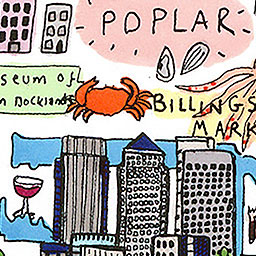 POPLAR
seum of
n Docklands
BILLINGS
MARK